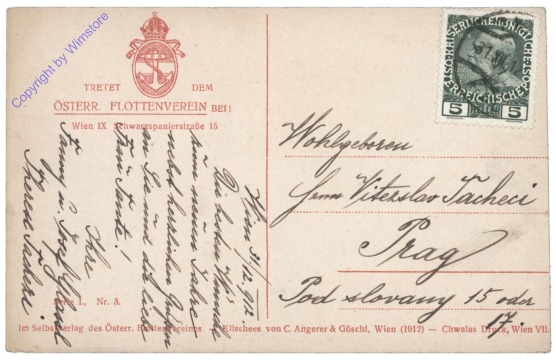 Copyright by Wimstore
TRETET DEM
ÖSTERR. FLOTTENVEREIN BEI!
Wien IX Schwarzspanierstraße 15
5 HELLER 5
Wohlgeboren
Herrn Viterslav Tacheci
Prag
Pod slovany 15 oder
17.
Wien 31/12. 912
Die besten Wünsche
zum neuen Jahre
nebst herzlichen Grüßen
an Sie und die liebe
Frau Tante!
Ihre
Fanny u. Josef
Therese
Serie I., Nr. 3.
Im Selbstverlag des Österr. Flottenvereines. – Klischees von C. Angerer & Göschl, Wien (1912) – Chwalas Druck, Wien VII.